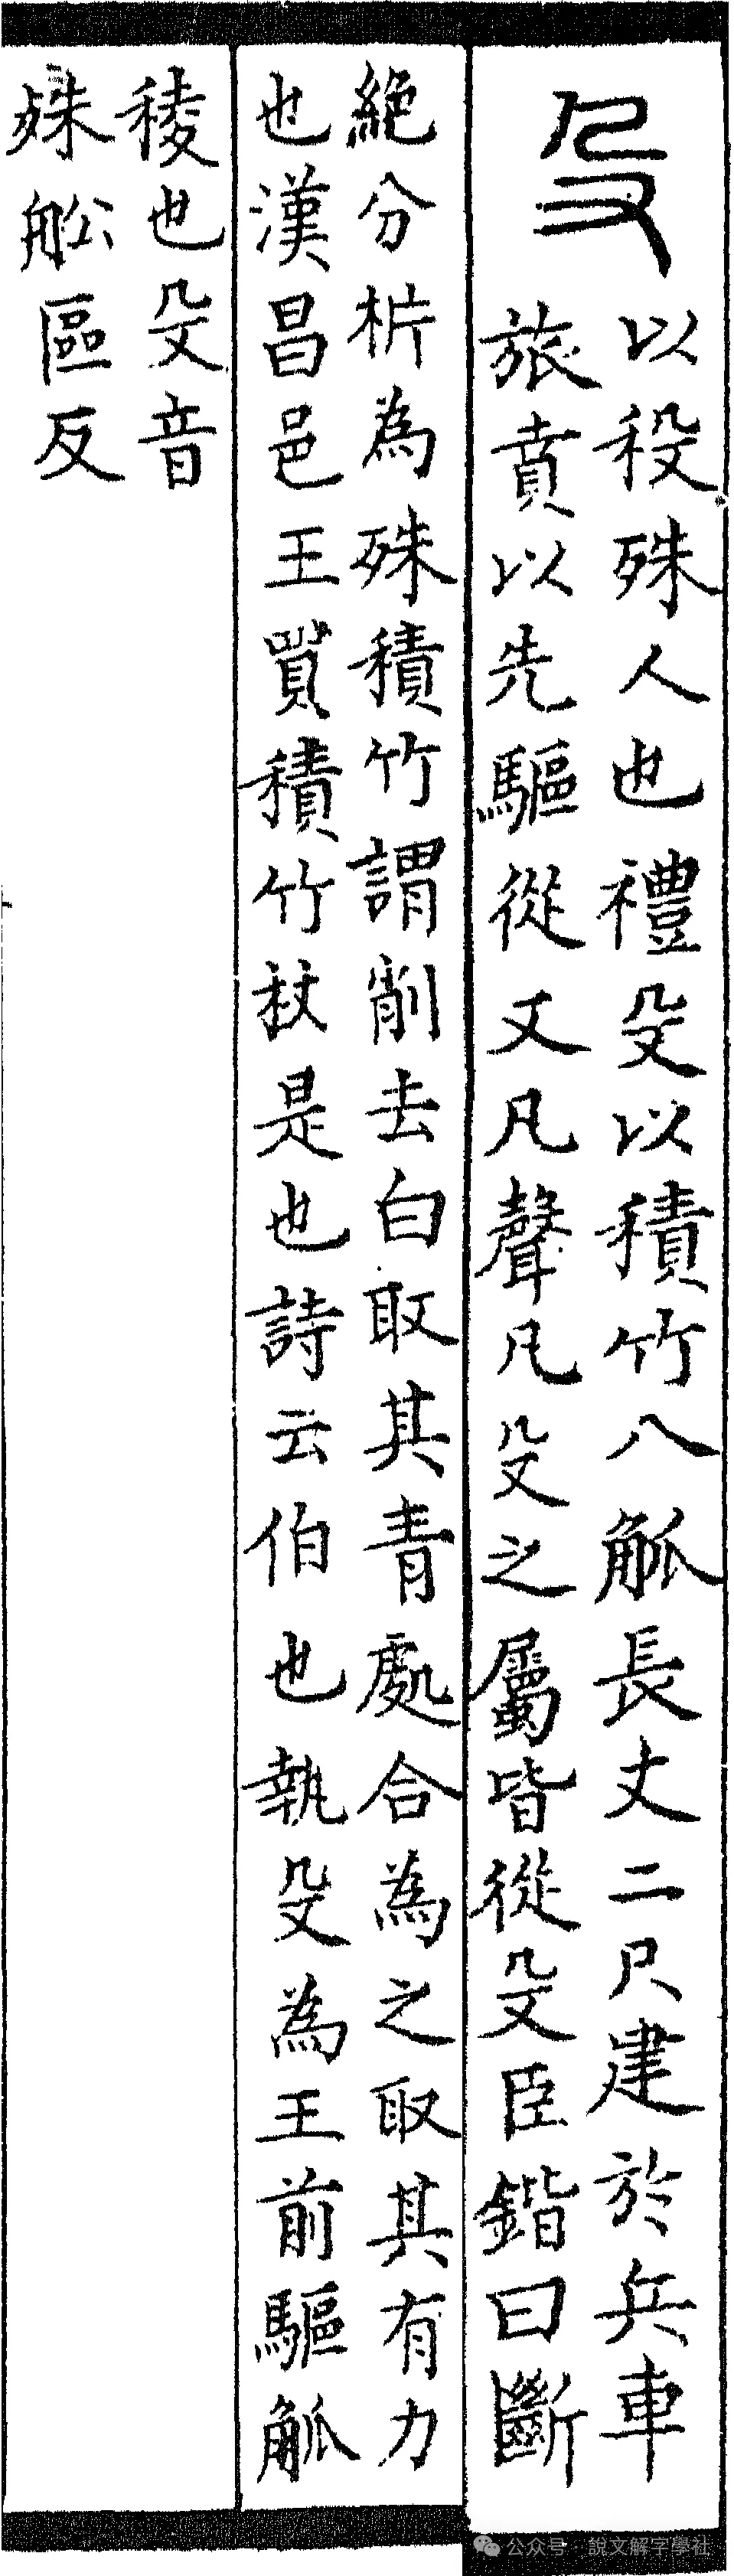 殳
以杸殊人也禮殳以積竹八觚長丈二尺建於兵車
旅賁以先驅從又凡聲凡殳之屬皆從殳臣鍇曰斷
絕分析為殊積竹謂削去白取其青處合為之取其有力
也漢昌邑王買積竹杖是也詩云伯也執殳為王前驅觚
稜也殳音
殊舩區反
公众号·說文解字學社